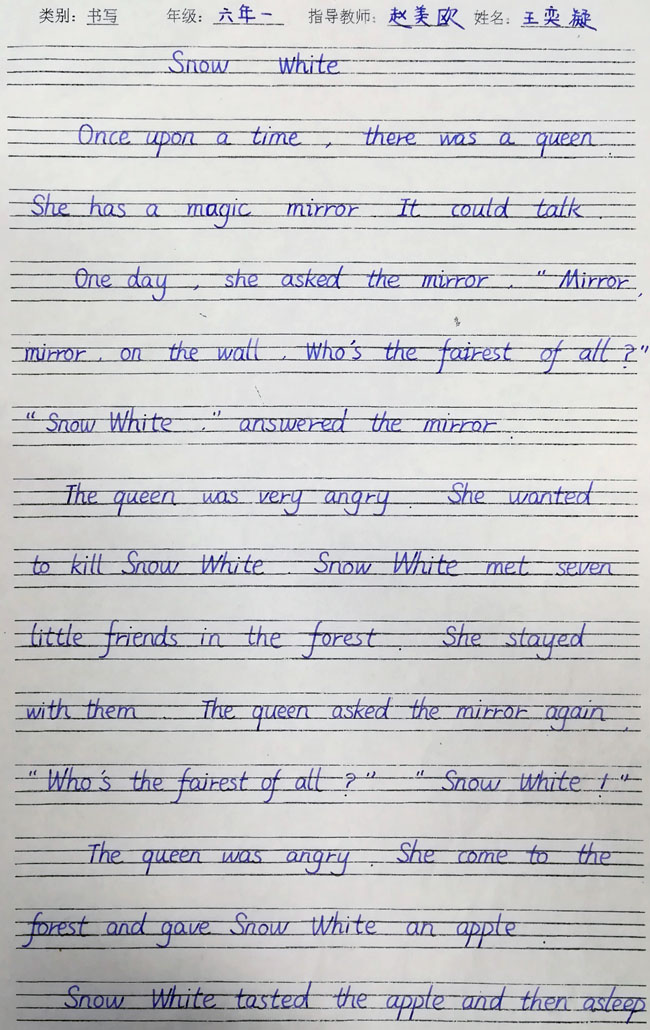 类别：书写 年级：六年一 指导教师：赵美欧 姓名：王奕凝
Snow White
Once upon a time , there was a queen .
She has a magic mirror It could talk .
One day , she asked the mirror . " Mirror ,
mirror . on the wall . Who's the fairest of all ? "
" Snow White . " answered the mirror .
The queen was very angry . She wanted
to kill Snow White . Snow White met seven
little friends in the forest . She stayed
with them . The queen asked the mirror again ,
" Who's the fairest of all ? " " Snow White ! "
The queen was angry . She come to the
forest and gave Snow White an apple .
Snow White tasted the apple and then asleep